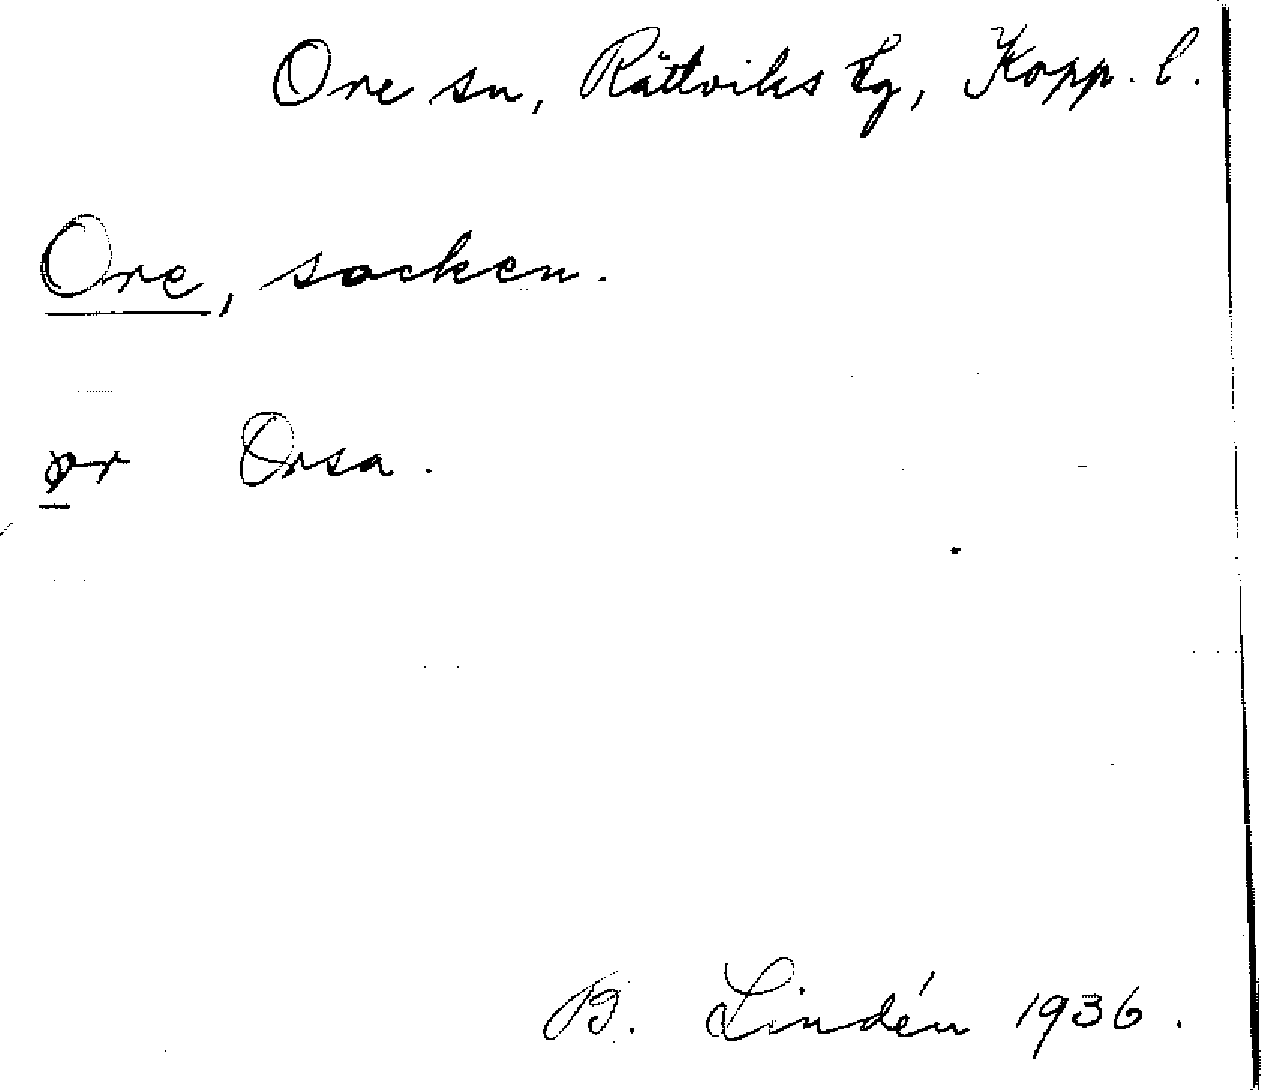 Ore sn, Rättviks tg, Kopp. l.
Ore, socken.
Orsa.
B. Lindén 1936.